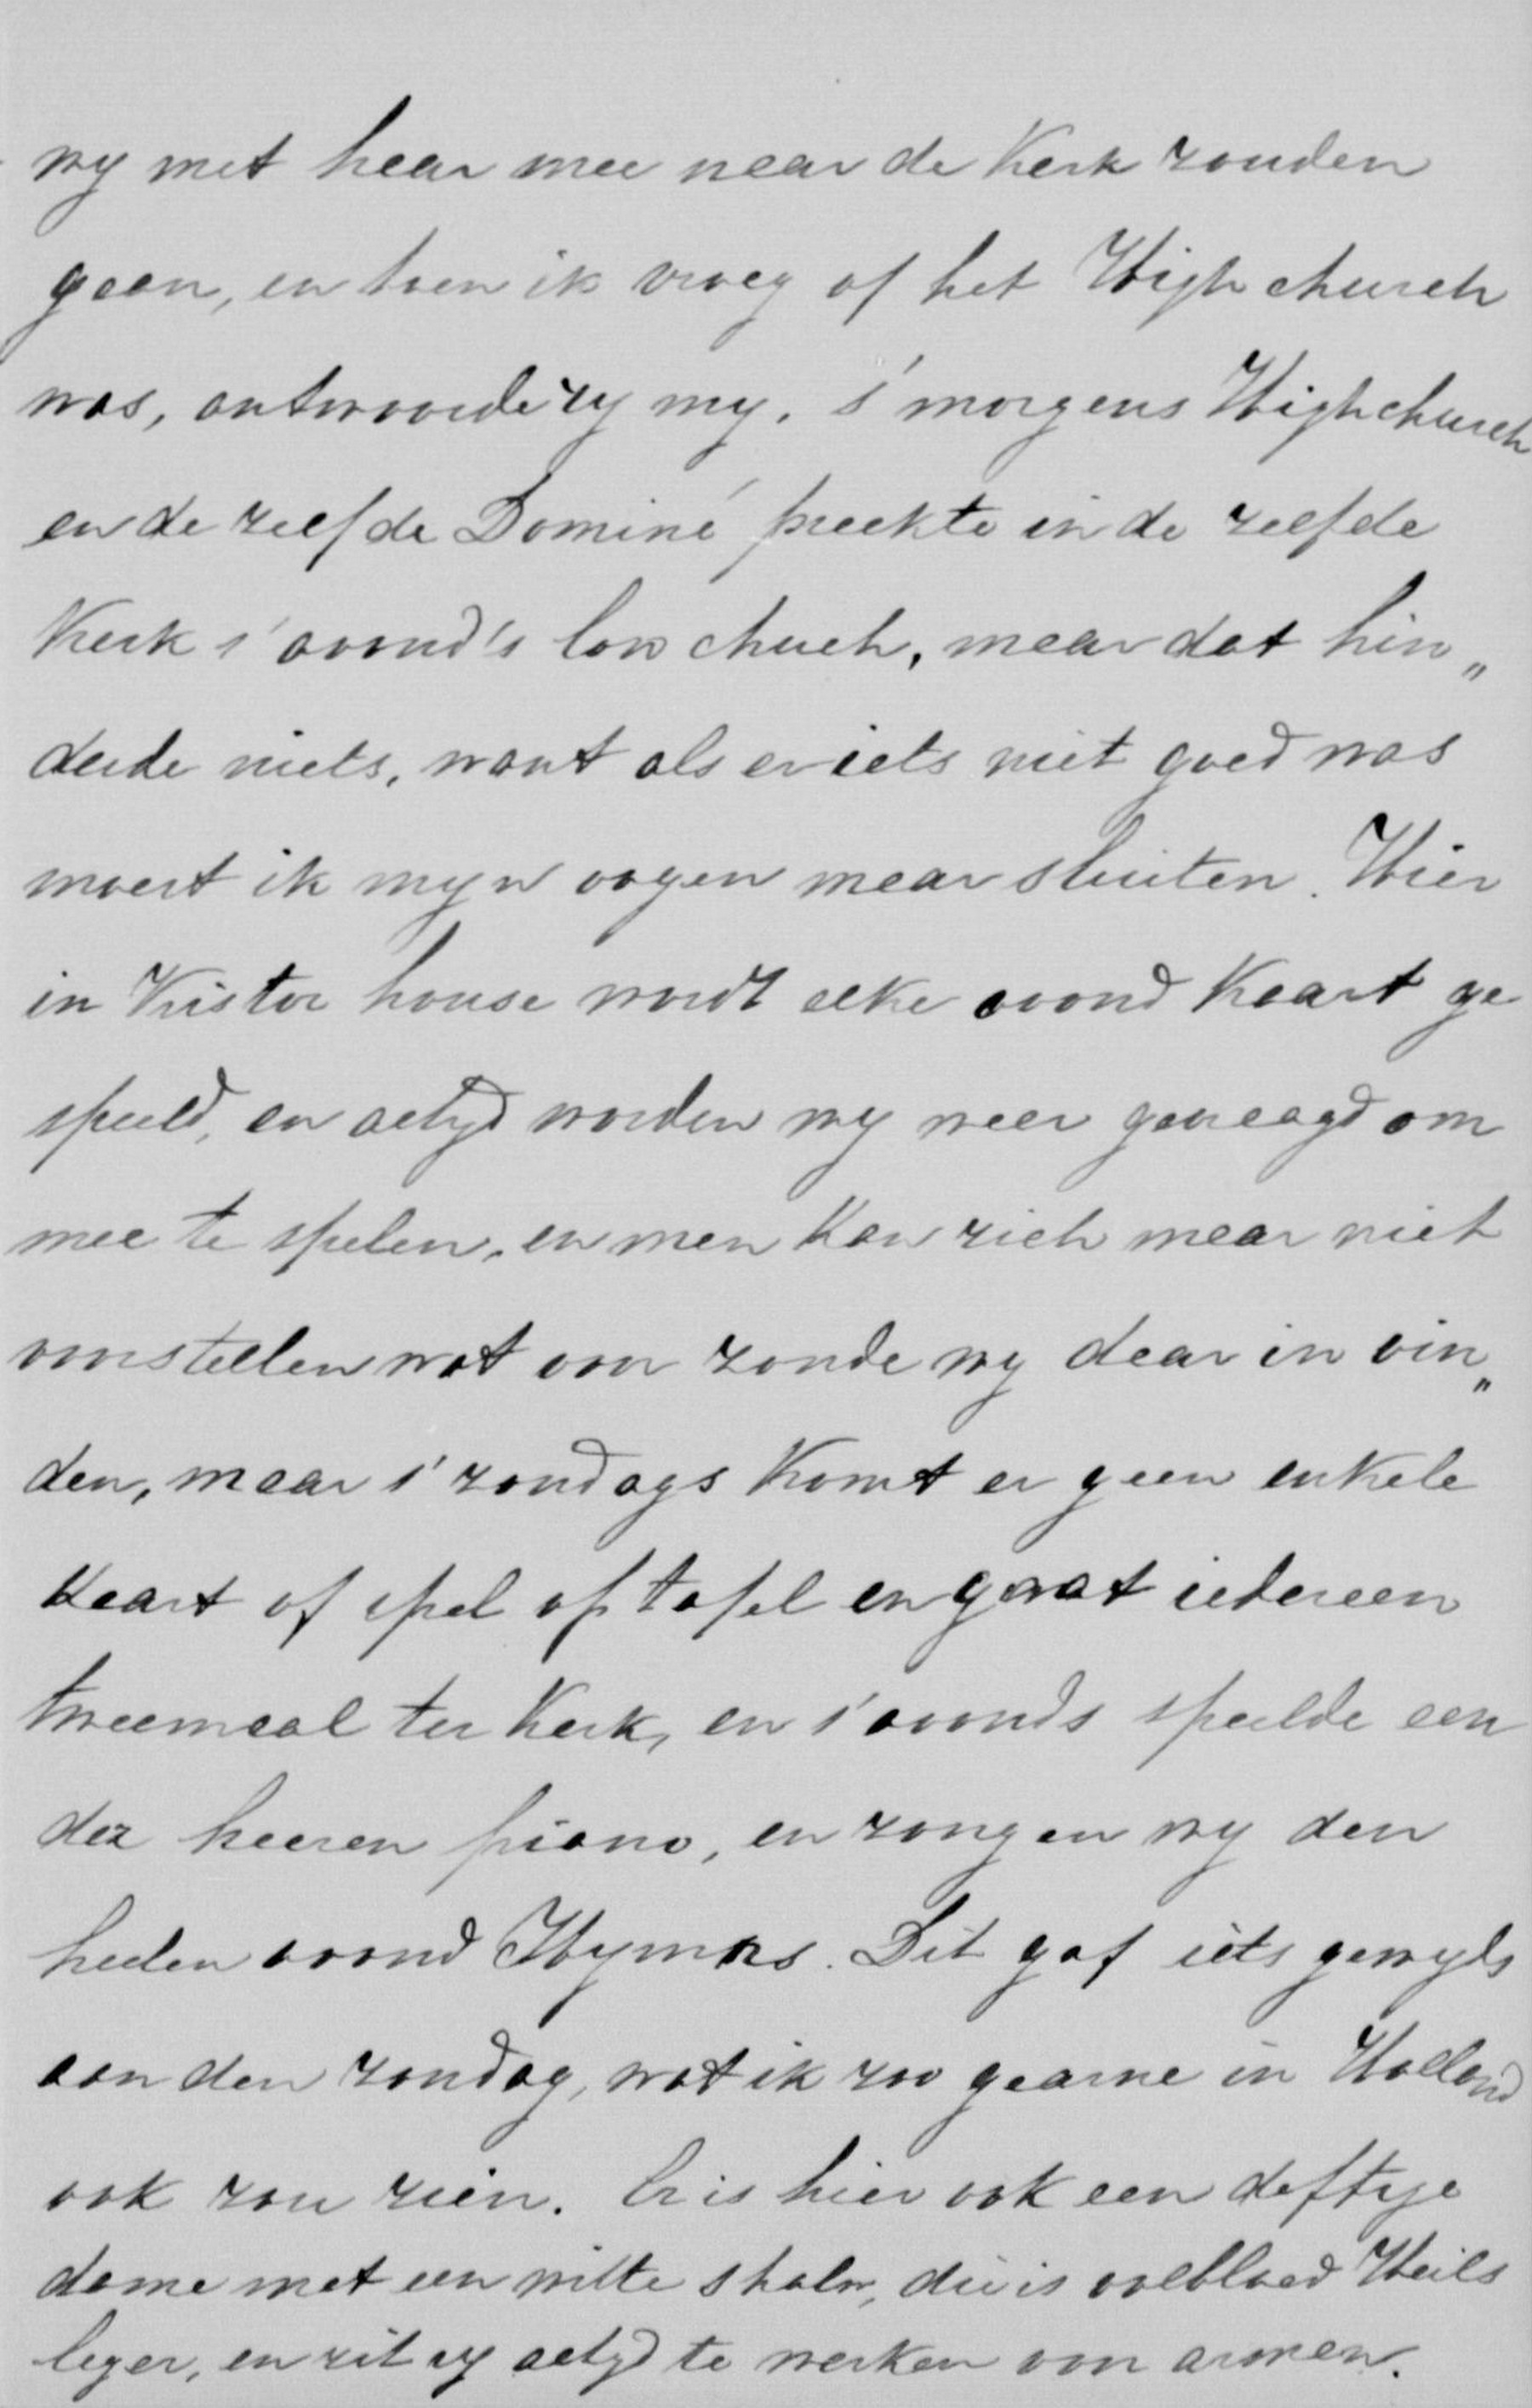 wy met haar mee naar de Kerk zouden
gaan, en toen ik vroeg of het High church
was, antwoorde zy my. s' morgens High church
en de zelfde Dominé preekte in de zelfde
Kerk s' avond's low church, maar dat hin„
derde niets, want als er iets niet goed was
moest ik myn oogen maar sluiten. Hier
in house wordt elke avond Kaart ge
speeld, en altyd worden wy weer gevraagd om
mee te spelen, en men Kan zich maar niet
voorstellen wat voor zonde wy daar in vin„
den, maar s' zondags Komt er geen enkele
Kaart of spel op tafel en gaat iedereen
tweemaal ter Kerk, en s' avonds speelde een
der heeren piano, en zongen wy den
heelen avond Hymns. Dit gaf iets gewyds
aan den zondag, wat ik zoo gaarne in Holland
ook zou zien. Er is hier ook een deftige
dame met een witte shalw, die is volbloed Heils
leger, en zit zy altyd te werken voor armen.